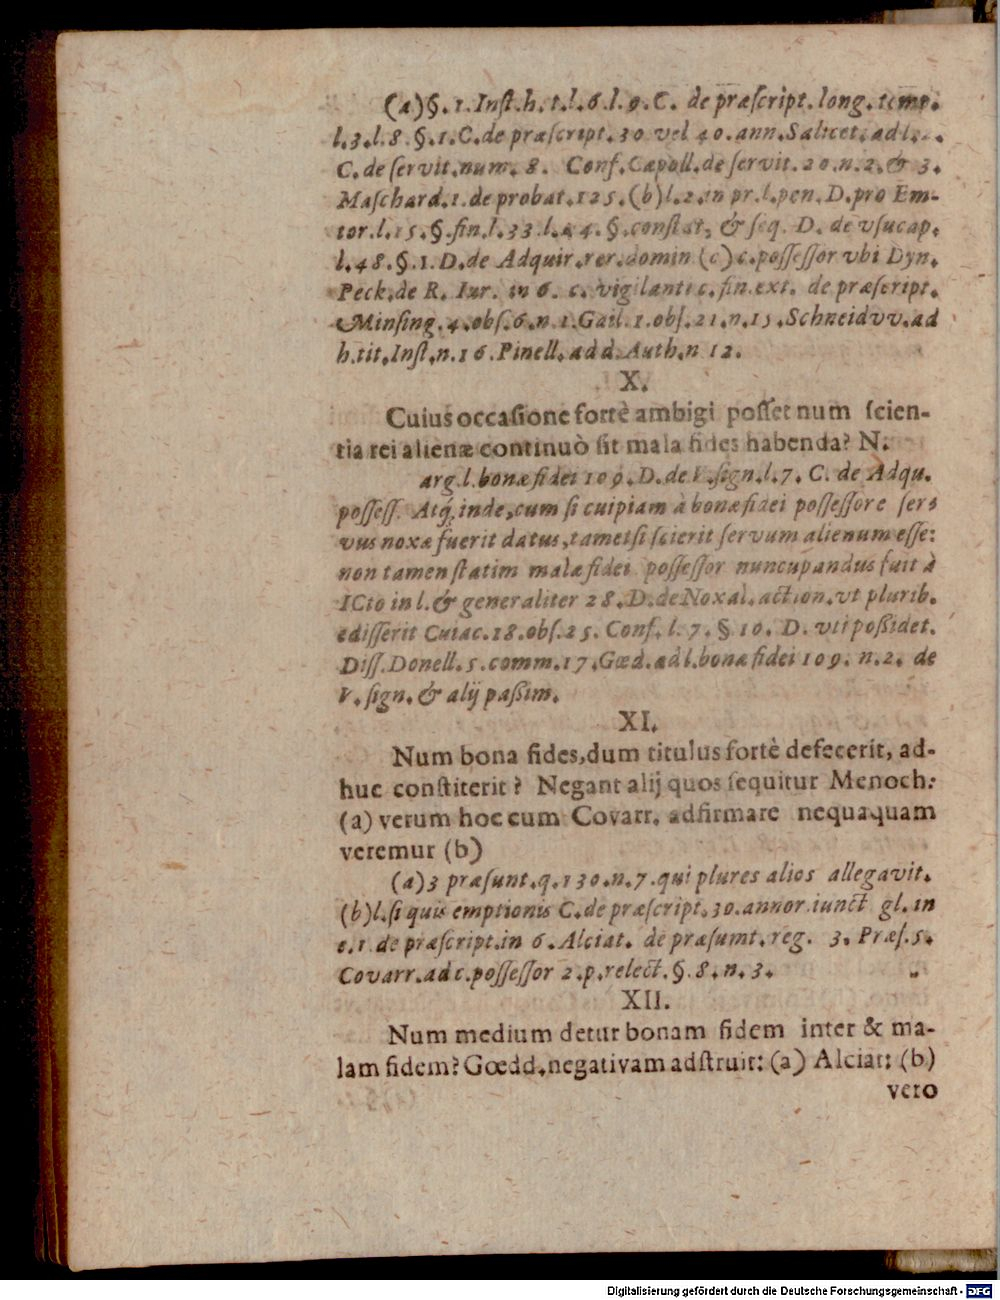 (a) §. 1. Inſt. h. t. l. 6. l. 9. C. de præſcript. long. temp.
l. 3. l. 8. §. 1. C. de præſcript. 30 vel 40. ann. Salicet. ad l.
C. de ſervit. num. 8. Conſ. Cæpoll. de ſervit. 20. n. 2. & 3.
Maſchard. 1. de probat. 125. (b) l. 2. in pr. l. pen. D. pro Em-
tor. l. 15. §. fin. l. 33. l. 44. §. conſtat, & ſeq. D. de vſucap.
l. 48. §. 1. D. de Adquir. rer. domin (c) c. poſſeſſor vbi Dyn.
Peck. de R. Iur. in 6. c. vigilanti c. fin. ext. de præſcript.
Minſing. 4. obſ. 6. n. 1. Gail. 1. obſ. 21. n. 15. Schneidvv. ad
h. tit. Inſt. n. 16. Pinell. add. Auth. n 12.
X.
Cuius occaſione fortè ambigi poſſet num ſcien-
tia rei alienæ continuò ſit mala fides habenda? N.
arg. l. bonæ fidei 109. D. de V. ſign. l. 7. C. de Adqu.
poſſeſſ. Atq́; inde, cum ſi cuipiam à bonæ fidei poſſeſſore ſer-
vus noxæ fuerit datus, tametſi ſcierit ſervum alienum eſſe:
non tamen ſtatim malæ fidei poſſeſſor nuncupandus fuit à
ICto in l. & generaliter 28. D. de Noxal. action. vt plurib.
ediſſerit Cuiac. 18. obſ. 25. Conf. l. 7. § 10. D. vti poßidet.
Diſſ. Donell. 5. comm. 17. Gœd. ad l. bonæ fidei 109. n. 2. de
V. ſign. & alij paßim.
XI.
Num bona fides, dum titulus fortè defecerit, ad-
huc conſtiterit? Negant alij quos ſequitur Menoch:
(a) verum hoc cum Covarr. adfirmare nequaquam
veremur (b)
(a) 3 præſunt. q. 130. n. 7. qui plures alios allegavit.
(b) l. ſi quis emptionis C. de præſcript. 30. annor iunct gl. in
c. 1. de præſcript. in 6. Alciat. de præſumt. reg. 3. Præſ. 5.
Covarr. ad c. poſſeſſor 2. p. relect. §. 8. n. 3.
XII.
Num medium detur bonam fidem inter & ma-
lam fidem? Gœdd. negativam adſtruit: (a) Alciat: (b)
vero
Digitalisierung gefördert durch die Deutsche Forschungsgemeinschaft - DFG